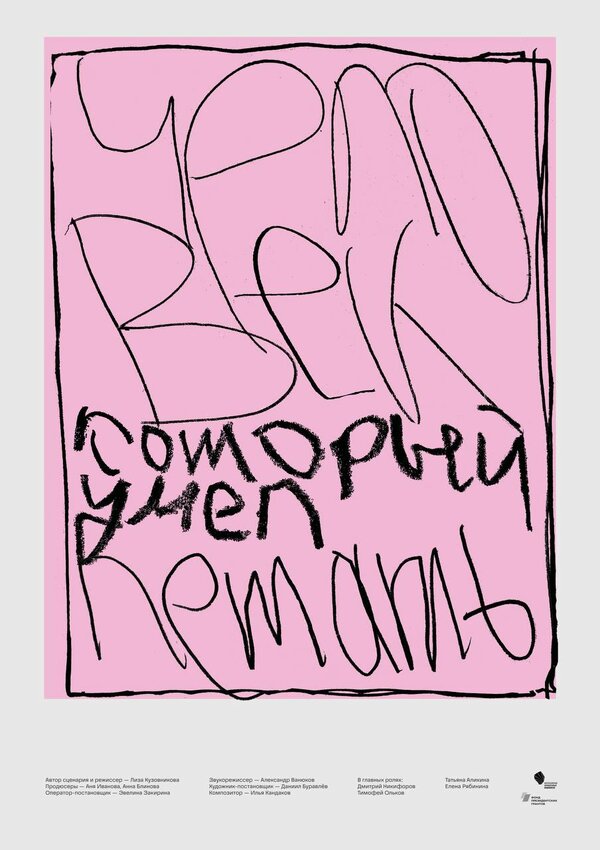 чело
век
который
умел
летать
Автор сценария и режиссер — Лиза Кузовникова
Продюсеры — Аня Иванова, Анна Блинова
Оператор-постановщик — Эвелина Закирина
Звукорежиссер — Александр Ванюков
Художник-постановщик — Даниил Буравлёв
Композитор — Илья Кандаков
В главных ролях:
Дмитрий Никифоров
Тимофей Ольков
Татьяна Апикина
Елена Рябинина
ФОНД
ПРЕЗИДЕНТСКИХ
ГРАНТОВ